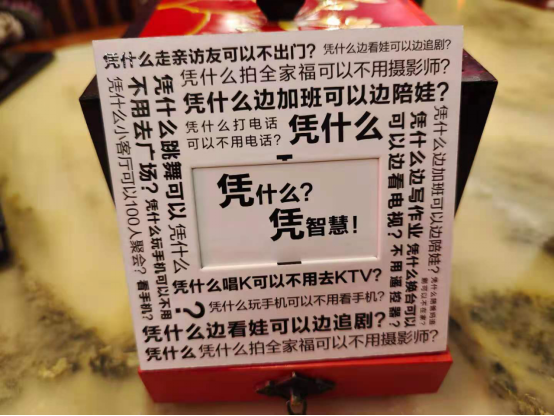 凭什么走亲访友可以不出门?
凭什么边看娃可以边追剧?
凭什么拍全家福可以不用摄影师?
凭什么边加班可以边陪娃?
凭什么打电话
可以不用电话?
凭什么
凭什么小客厅可以100人聚会?
不用去广场?
凭什么跳舞可以
凭什么玩手机可以不用
看手机?
凭什么
凭什么?
凭智慧!
凭什么边写作业
可以边看电视?
凭什么换台可以
不用遥控器?
凭什么边加班可以边陪娃?
凭什么唱K可以不用去KTV?
?
凭什么玩手机可以不用看手机?
凭什么边看娃可以边追剧?
凭什么
凭什么拍全家福可以不用摄影师?